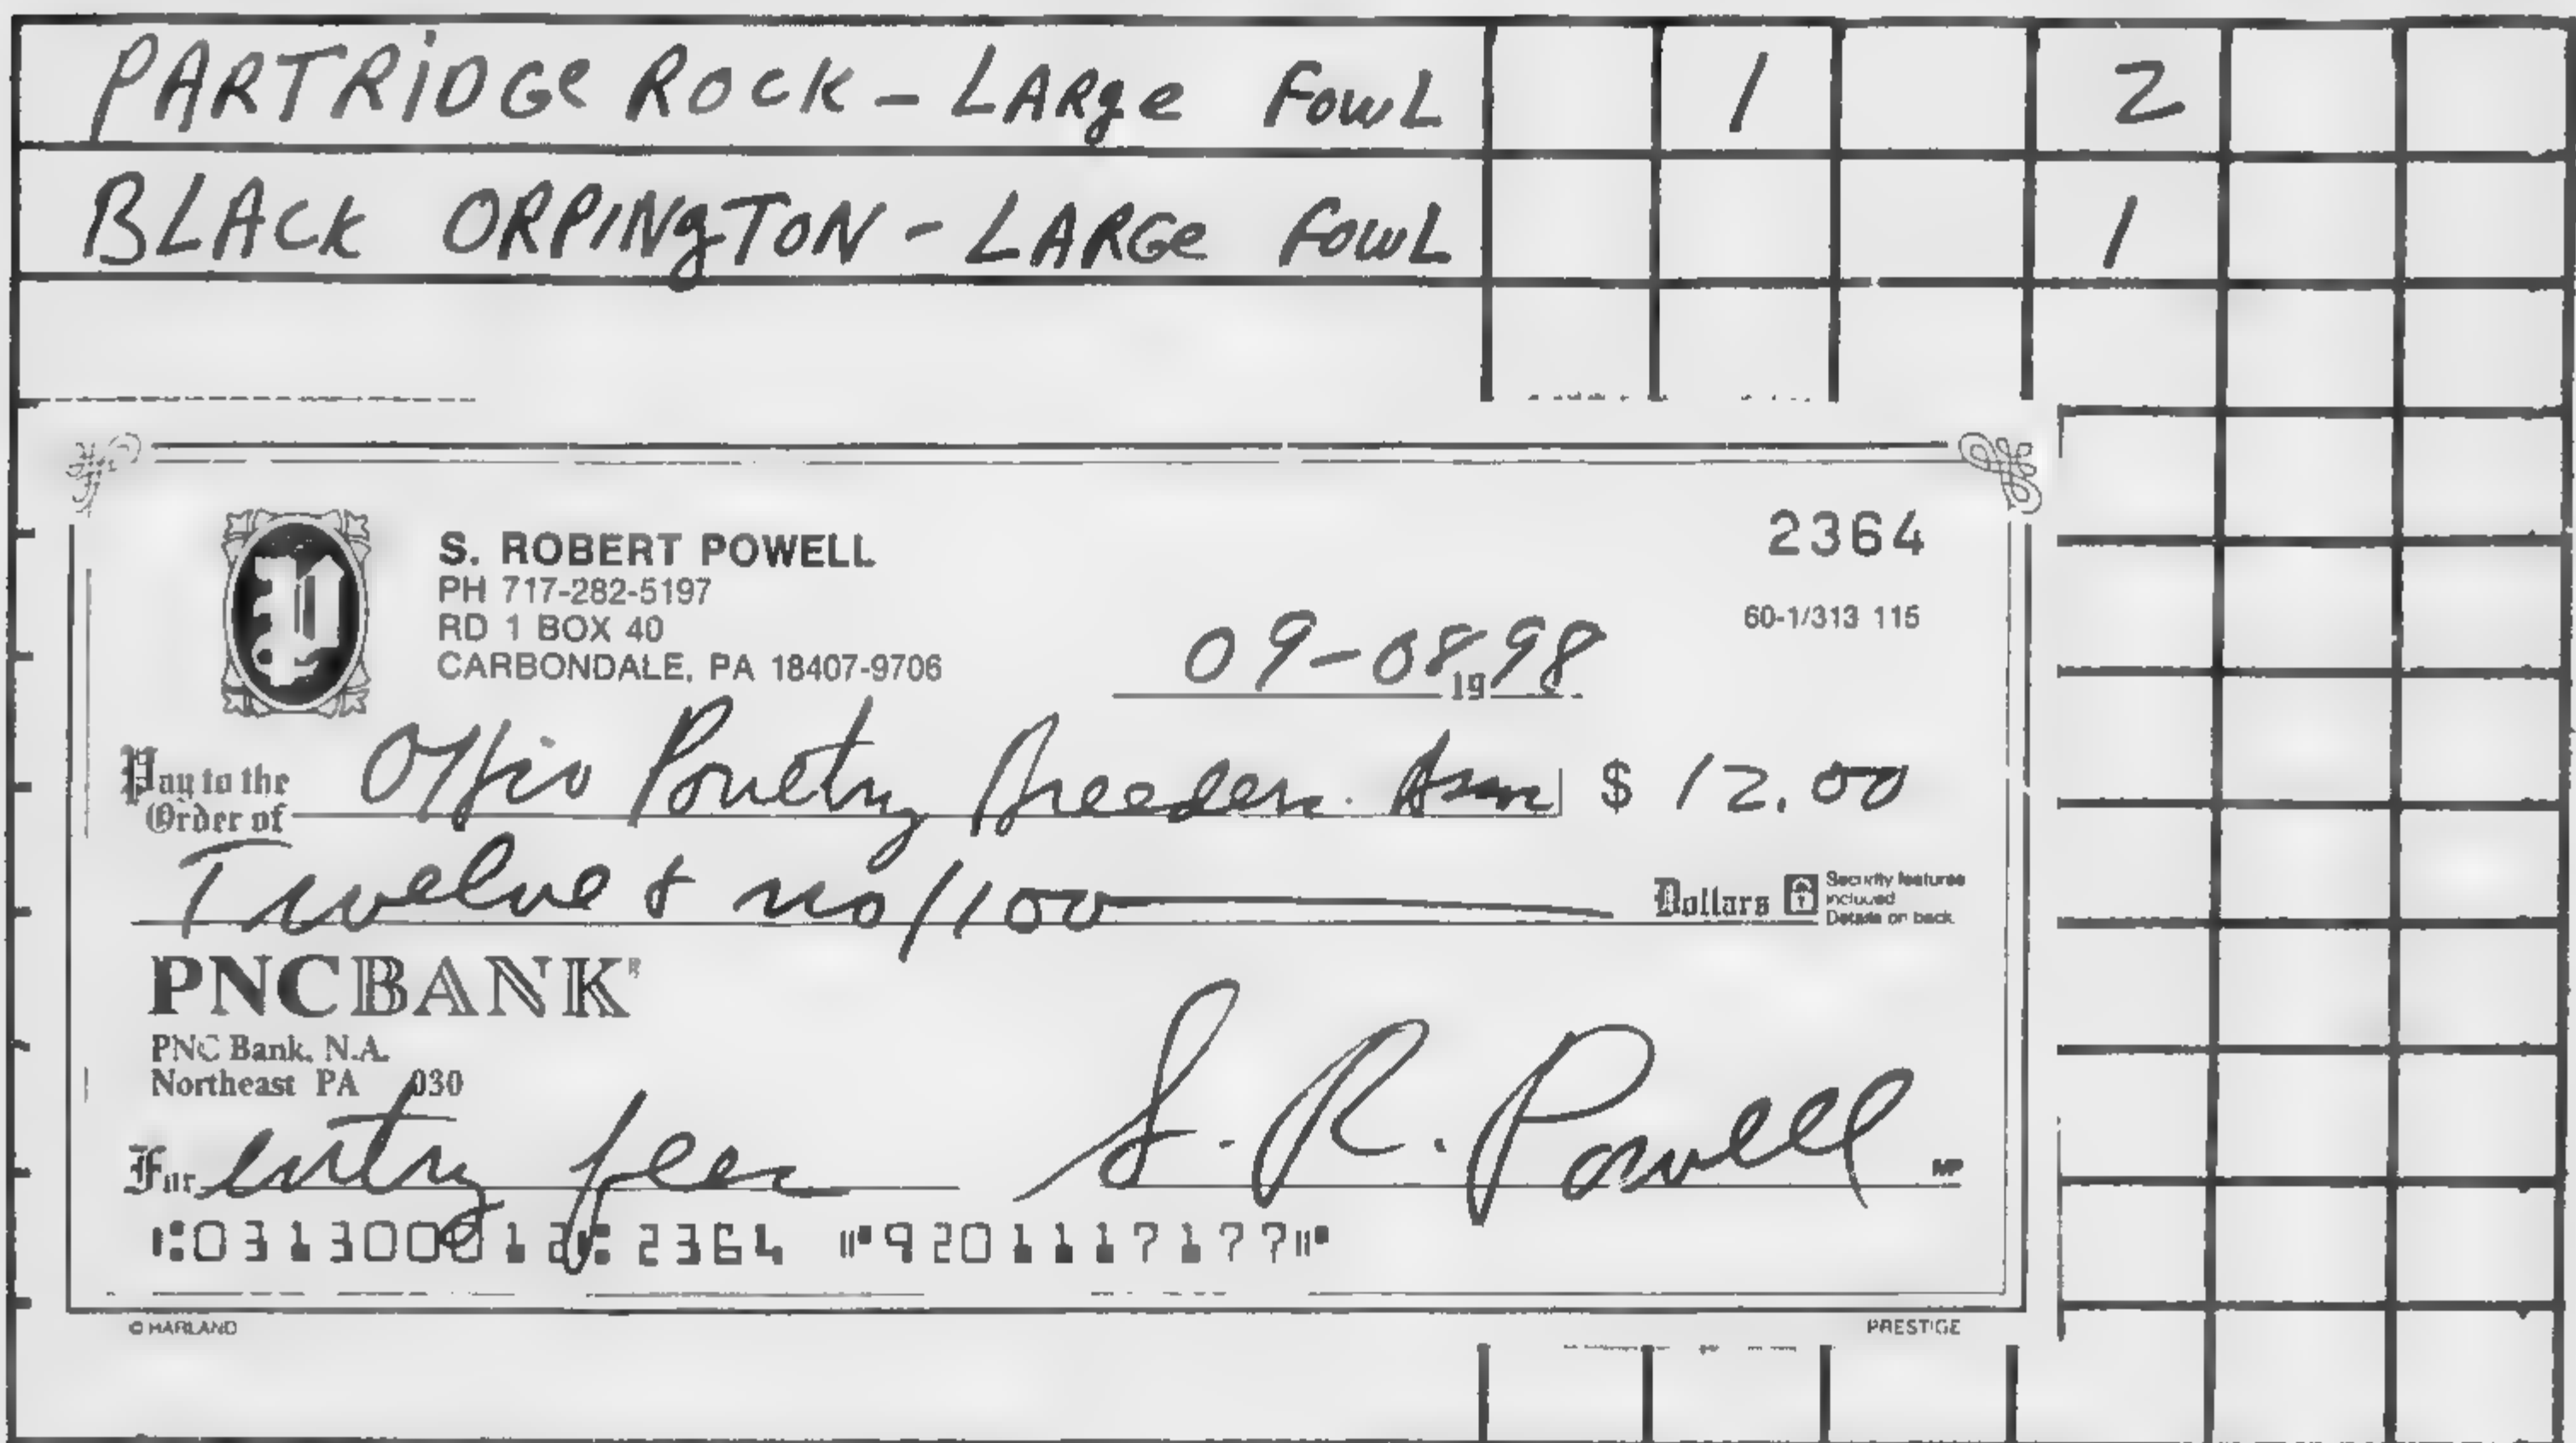 PARTRIDGE ROCK - LARGE FOWL 1 2
BLACK ORPINGTON - LARGE FOWL 1
S. ROBERT POWELL 2364
PH 717-282-5197
RD 1 BOX 40 60-1/313 115
CARBONDALE, PA 18407-9706 09-08 1998
Pay to the Order of Ohio Poultry Breeders Assn $ 12.00
Twelve & no/100 Dollars Security features included. Details on back.
PNCBANK
PNC Bank, N.A.
Northeast PA 030
For entry fees S. R. Powell MP
⑆031300012⑆ 2364 ⑈9201117177⑈
© HARLAND PRESTIGE